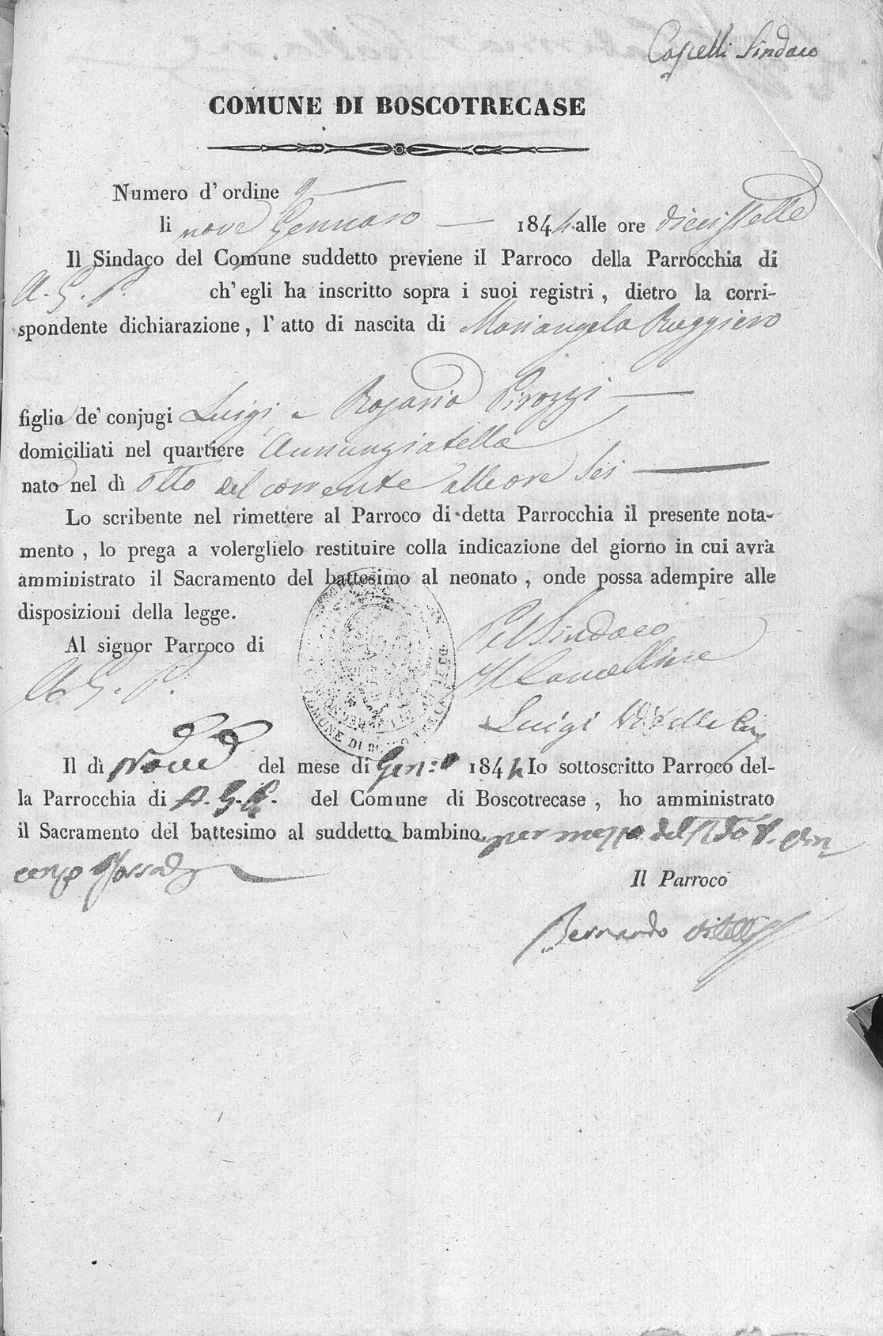 Capelli Sindaco
COMUNE DI BOSCOTRECASE
Numero d' ordine 9
li nove Gennaro 1844 alle ore diecissette
Il Sindaco del Comune suddetto previene il Parroco della Parrocchia di
A. G. P. ch' egli ha inscritto sopra i suoi registri, dietro la corri-
spondente dichiarazione, l' atto di nascita di Mariangela Ruggiero
figlia de' conjugi Luigi e Rosaria Pirozzi
domiciliati nel quartiere Annunziatella
nato nel dì otto del corrente alle ore sei
Lo scribente nel rimettere al Parroco di detta Parrocchia il presente nota-
mento, lo prega a volerglielo restituire colla indicazione del giorno in cui avrà
amministrato il Sacramento del battesimo al neonato, onde possa adempire alle
disposizioni della legge.
Al signor Parroco di
A. G. P.
Pel Sindaco
Il Cancelliere
Luigi
Il dì Nove del mese di Gen:o 1844 Io sottoscritto Parroco del-
la Parrocchia di A. G. P. del Comune di Boscotrecase, ho amministrato
il Sacramento del battesimo al suddetto bambino per mezzo del
Il Parroco
Bernardo Vitelli